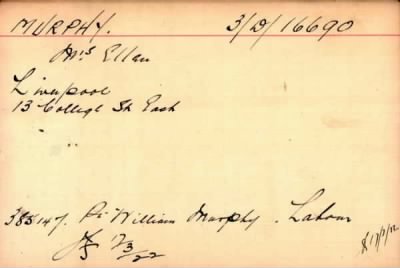 MURPHY. 3/D/16690
Mrs Ellen
Liverpool
13 College St East
385147. Pte William Murphy. Labour
17/3/22